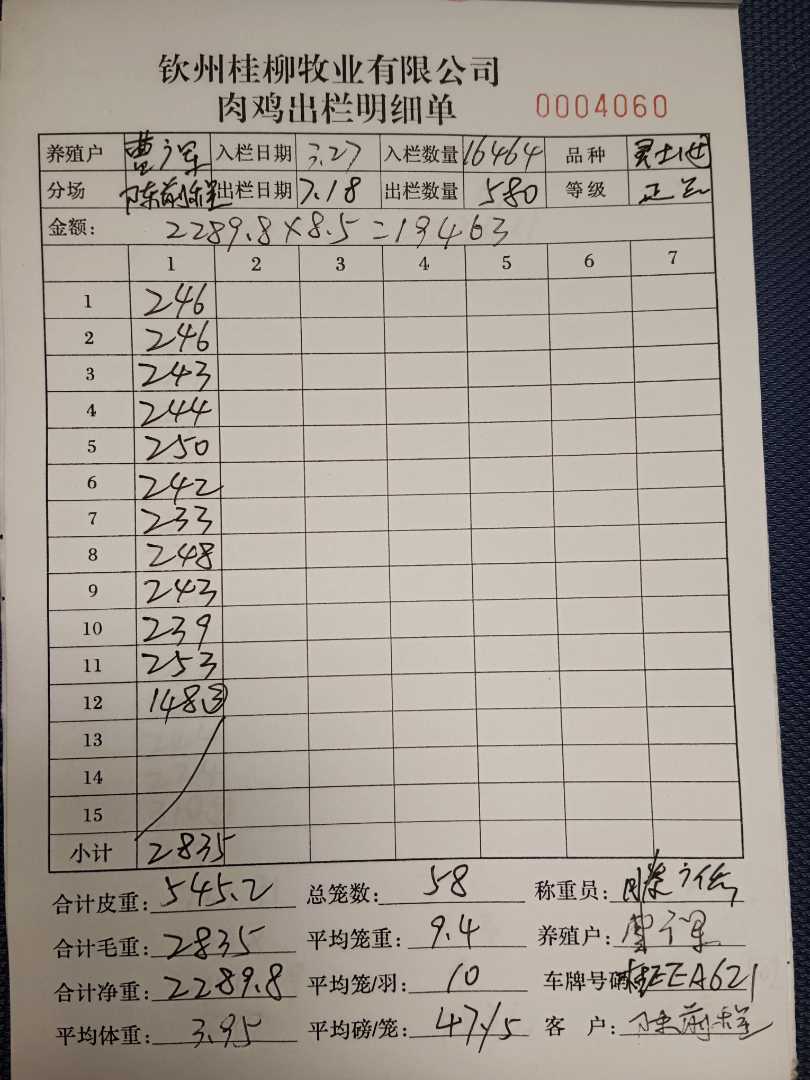 钦州桂柳牧业有限公司
肉鸡出栏明细单 0004060
养殖户 入栏日期 3.27 入栏数量 16464 品种
分场 陈前程 出栏日期 7.18 出栏数量 580 等级 正
金额: 2289.8×8.5=19463
1 2 3 4 5 6 7
1 246
2 246
3 243
4 244
5 250
6 242
7 233
8 248
9 243
10 239
11 253
12 148③
13
14
15
小计 2835
合计皮重: 545.2 总笼数: 58 称重员:
合计毛重: 2835 平均笼重: 9.4 养殖户:
合计净重: 2289.8 平均笼/羽: 10 车牌号码: EEA621
平均体重: 3.95 平均磅/笼: 47/5 客户: 陈前程